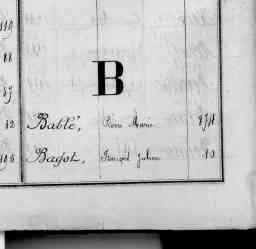 119
88
B
82 Bablé, Pierre Marie 871
Bagot, François Julien 10